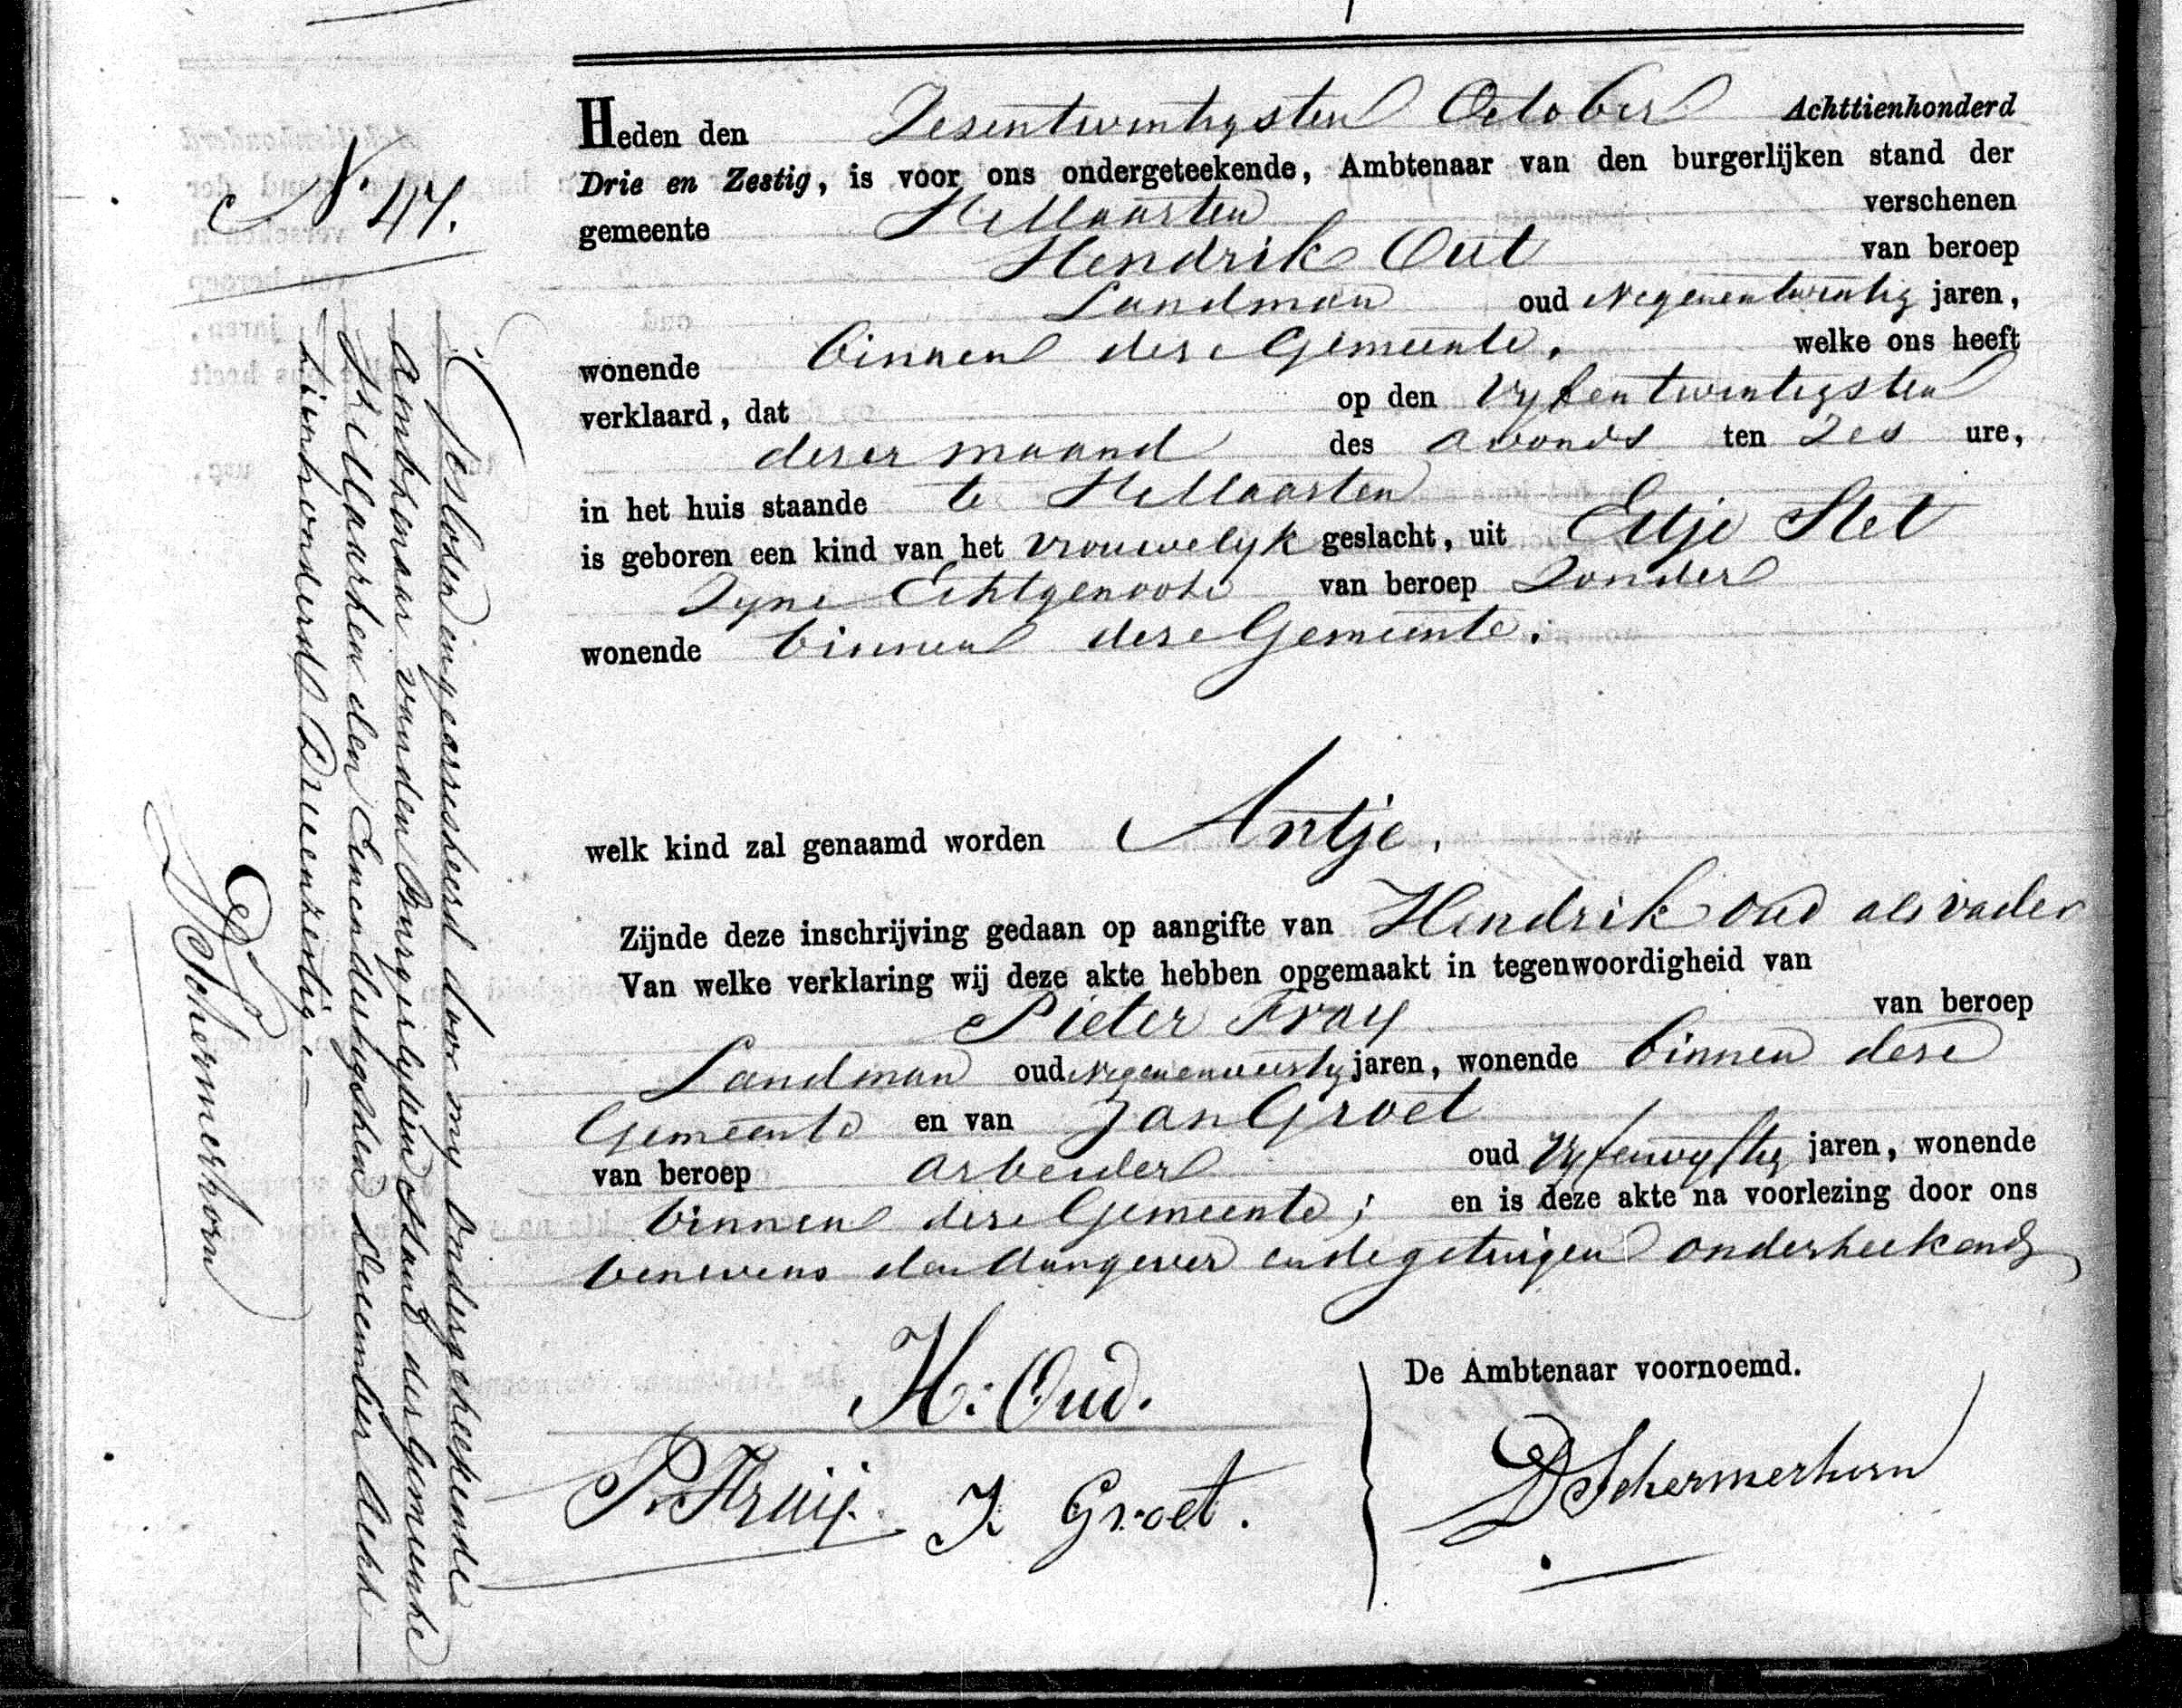 N° 47.
Heden den Zesentwintigsten October Achttienhonderd
Drie en Zestig, is voor ons ondergeteekende, Ambtenaar van den burgerlijken stand der
gemeente St Maarten verschenen
Hendrik Out van beroep
Landman oud Negenentwintig jaren,
wonende binnen dese Gemeente. welke ons heeft
verklaard, dat op den Vyfentwintigsten
deser maand des avonds ten Zes ure,
in het huis staande te St Maarten
is geboren een kind van het vrouwelyk geslacht, uit Eltje Slet
Zyne Echtgenoote van beroep Zonder
wonende binnen dese Gemeente.
welk kind zal genaamd worden Antje.
Zijnde deze inschrijving gedaan op aangifte van Hendrik Oud als vader
Van welke verklaring wij deze akte hebben opgemaakt in tegenwoordigheid van
Pieter Fray van beroep
Landman oud Negenenveertig jaren, wonende binnen dese
Gemeente en van Jan Groet
van beroep arbeider oud Vyfenvyftig jaren, wonende
binnen dese Gemeente; en is deze akte na voorlezing door ons
benevens den Aangever en de getuigen onderteekend
H: Oud.
De Ambtenaar voornoemd.
P. Kruij. J Groet.
D Schermerhorn
Gesloten en gearresteerd door my Ondergeteekende
Ambtenaar van den Burgerlyken Stand der Gemeente
St Maarten den Eenendertigsten December Acht
tienhonderd Drieenzestig.
D Schermerhorn